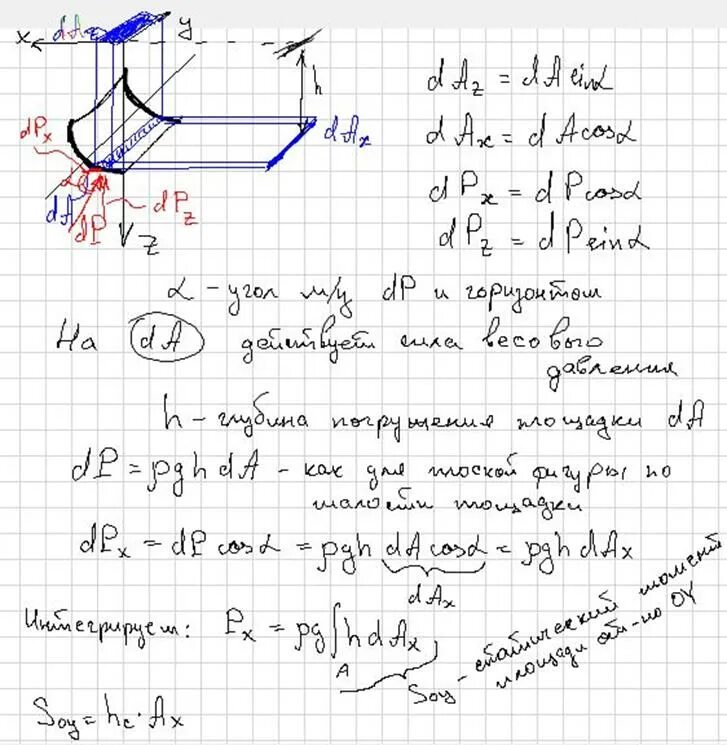 dAz
x
y
h
dAx
dPx
α
dA
dP
dPz
z
dAz = dA sinα
dAx = dA cosα
dPx = dP cosα
dPz = dP sinα
α - угол м/у dP и горизонтом
На dA действует сила весового
давления
h - глубина погружения площадки dA
dP = ρgh dA - как для плоской фигуры по
малости площадки
dPx = dP cosα = ρgh dA cosα = ρgh dAx
dAx
Интегрируем: Px = ρg∫h dAx
A
Soy - статический момент
площади отн-но OY
Soy = hc · Ax